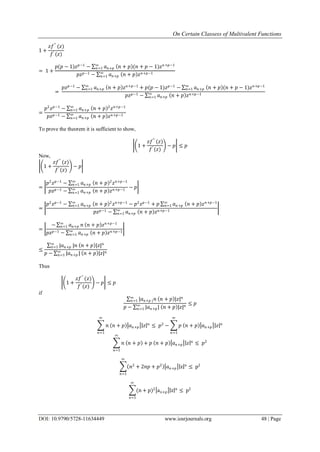 On Certain Classess of Multivalent Functions
1 + zf″(z) / f′(z)
= 1 + p(p − 1)z^{p−1} − ∑_{n=1}^{∞} a_{n+p} (n + p)(n + p − 1)z^{n+p−1} / pz^{p−1} − ∑_{n=1}^{∞} a_{n+p} (n + p)z^{n+p−1}
= pz^{p−1} − ∑_{n=1}^{∞} a_{n+p} (n + p)z^{n+p−1} + p(p − 1)z^{p−1} − ∑_{n=1}^{∞} a_{n+p} (n + p)(n + p − 1)z^{n+p−1} / pz^{p−1} − ∑_{n=1}^{∞} a_{n+p} (n + p)z^{n+p−1}
= p²z^{p−1} − ∑_{n=1}^{∞} a_{n+p} (n + p)²z^{n+p−1} / pz^{p−1} − ∑_{n=1}^{∞} a_{n+p} (n + p)z^{n+p−1}
To prove the theorem it is sufficient to show,
|(1 + zf″(z) / f′(z)) − p| ≤ p
Now,
|(1 + zf″(z) / f′(z)) − p|
= |p²z^{p−1} − ∑_{n=1}^{∞} a_{n+p} (n + p)²z^{n+p−1} / pz^{p−1} − ∑_{n=1}^{∞} a_{n+p} (n + p)z^{n+p−1} − p|
= |p²z^{p−1} − ∑_{n=1}^{∞} a_{n+p} (n + p)²z^{n+p−1} − p²z^{p−1} + p ∑_{n=1}^{∞} a_{n+p} (n + p)z^{n+p−1} / pz^{p−1} − ∑_{n=1}^{∞} a_{n+p} (n + p)z^{n+p−1}|
= |− ∑_{n=1}^{∞} a_{n+p} n (n + p)z^{n+p−1} / pz^{p−1} − ∑_{n=1}^{∞} a_{n+p} (n + p)z^{n+p−1}|
≤ ∑_{n=1}^{∞} |a_{n+p}|n (n + p)|z|ⁿ / p − ∑_{n=1}^{∞} |a_{n+p}| (n + p)|z|ⁿ
Thus
|(1 + zf″(z) / f′(z)) − p| ≤ p
if
∑_{n=1}^{∞} |a_{n+p}|n (n + p)|z|ⁿ / p − ∑_{n=1}^{∞} |a_{n+p}| (n + p)|z|ⁿ ≤ p
∑_{n=1}^{∞} n (n + p)|a_{n+p}||z|ⁿ ≤ p² − ∑_{n=1}^{∞} p (n + p)|a_{n+p}||z|ⁿ
∑_{n=1}^{∞} n (n + p) + p (n + p)|a_{n+p}||z|ⁿ ≤ p²
∑_{n=1}^{∞} (n² + 2np + p²)|a_{n+p}||z|ⁿ ≤ p²
∑_{n=1}^{∞} (n + p)²|a_{n+p}||z|ⁿ ≤ p²
DOI: 10.9790/5728-11634449 www.iosrjournals.org 48 | Page